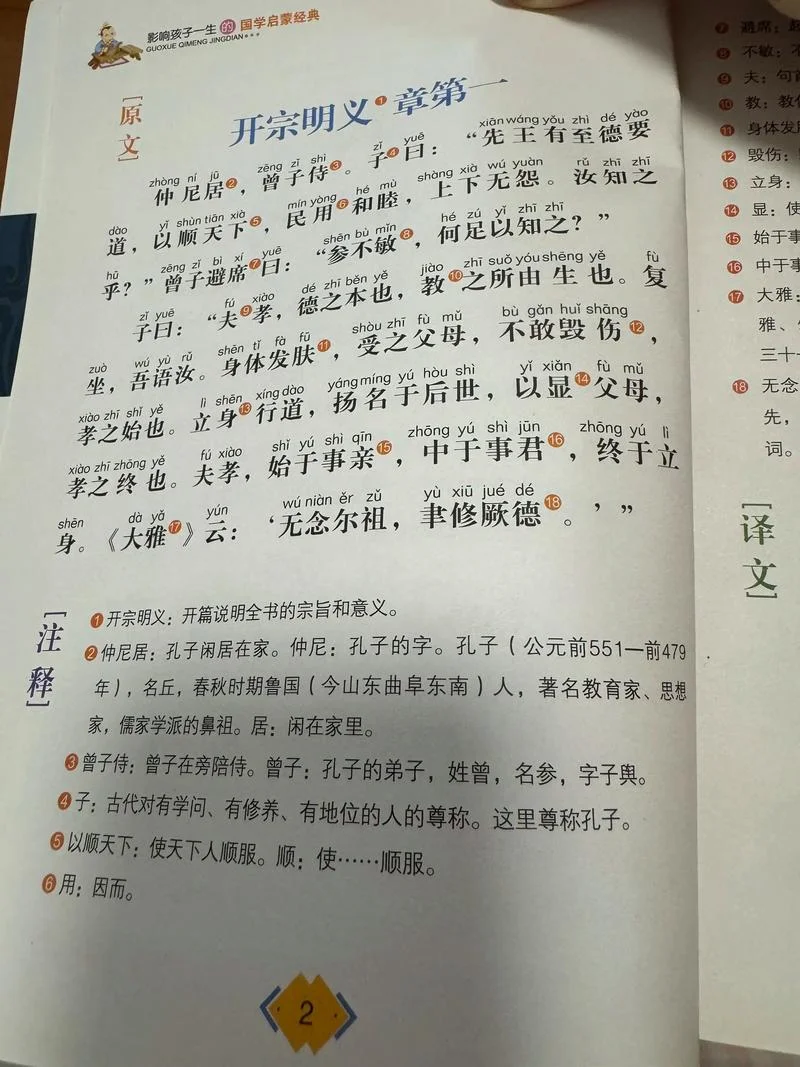 影响孩子一生的国学启蒙经典
GUOXUE QIMENG JINGDIAN
[原文]
开宗明义❶章第一
xiān wáng yǒu zhì dé yào
zhòng ní jū zēng zǐ shì zǐ yuē
仲尼居❷，曾子侍❸。子❹曰：“先王有至德要
dào yǐ shùn tiān xià mín yòng hé mù shàng xià wú yuàn rǔ zhī zhī
道，以顺天下❺，民用❻和睦，上下无怨。汝知之
hū zēng zǐ bì xí yuē shēn bù mǐn hé zú yǐ zhī zhī
乎？”曾子避席❼曰：“参不敏❽，何足以知之？”
zǐ yuē fú xiào dé zhī běn yě jiào zhī suǒ yóu shēng yě fù
子曰：“夫❾孝，德之本也，教❿之所由生也。复
zuò wú yù rǔ shēn tǐ fà fū shòu zhī fù mǔ bù gǎn huǐ shāng
坐，吾语汝。身体发肤⓫，受之父母，不敢毁伤⓬，
xiào zhī shǐ yě lì shēn xíng dào yáng míng yú hòu shì yǐ xiǎn fù mǔ
孝之始也。立身⓭行道，扬名于后世，以显⓮父母，
xiào zhī zhōng yě fú xiào shǐ yú shì qīn zhōng yú shì jūn zhōng yú lì
孝之终也。夫孝，始于事亲⓯，中于事君⓰，终于立
shēn dà yǎ yún wú niàn ěr zǔ yù xiū jué dé
身。《大雅⓱》云：‘无念尔祖，聿修厥德⓲。’”
[注释]
❶开宗明义：开篇说明全书的宗旨和意义。
❷仲尼居：孔子闲居在家。仲尼：孔子的字。孔子（公元前551—前479
年），名丘，春秋时期鲁国（今山东曲阜东南）人，著名教育家、思想
家，儒家学派的鼻祖。居：闲在家里。
❸曾子侍：曾子在旁陪侍。曾子：孔子的弟子，姓曾，名参，字子舆。
❹子：古代对有学问、有修养、有地位的人的尊称。这里尊称孔子。
❺以顺天下：使天下人顺服。顺：使……顺服。
❻用：因而。
2
❼避席：
❽不敏：
❾夫：句首
❿教：教化
⓫身体发肤
⓬毁伤：
⓭立身：
⓮显：使
⓯始于事
⓰中于事
⓱大雅：
雅、
三十一
⓲无念
先，
词。
[译文]